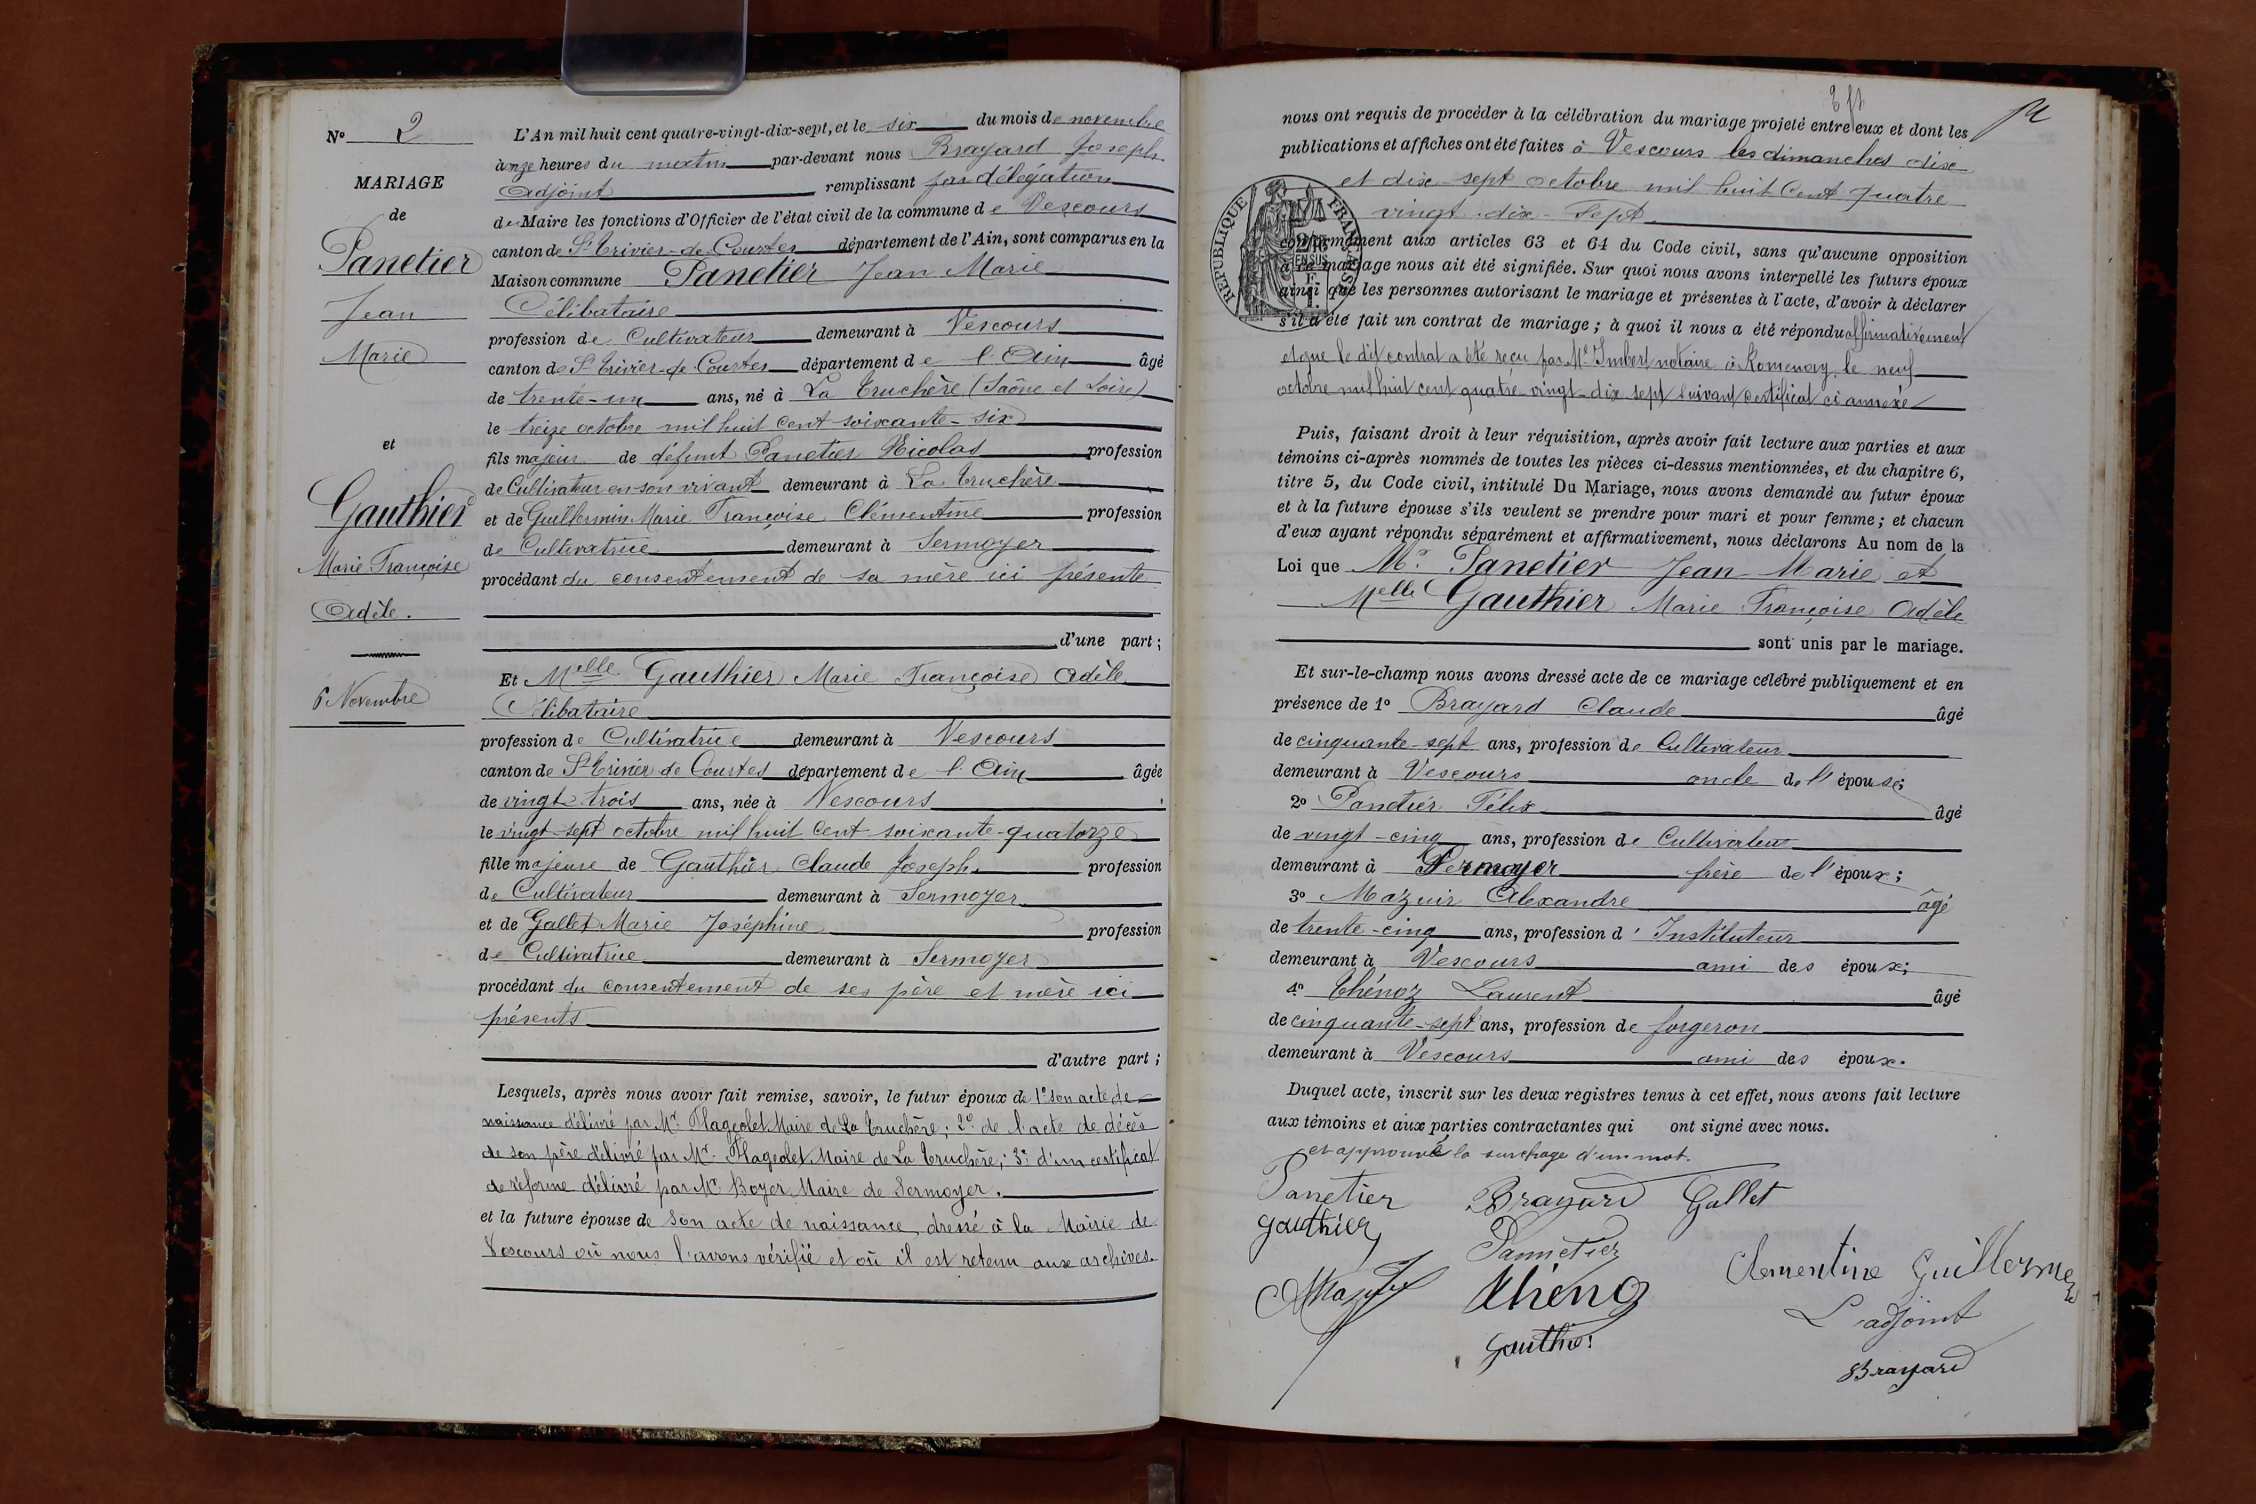 N° 2
MARIAGE
de
Panetier
Jean
Marie
et
Gauthier
Marie Françoise
Adèle.
6 Novembre
L'An mil huit cent quatre-vingt-dix-sept, et le six du mois de novembre
à onze heures du matin par-devant nous Brayard Joseph
Adjoint remplissant par délégation
du Maire les fonctions d'Officier de l'état civil de la commune de Vescours
canton de St Trivier-de-Courtes département de l'Ain, sont comparus en la
Maison commune Panetier Jean Marie
Célibataire
profession de Cultivateur demeurant à Vescours
canton de St Trivier-de-Courtes département de l'Ain âgé
de trente-un ans, né à La Truchère (Saône et Loire)
le treize octobre mil huit cent soixante-six
fils majeur de défunt Panetier Nicolas profession
de Cultivateur en son vivant demeurant à La Truchère
et de Guillermin Marie Françoise Clémentine profession
de Cultivatrice demeurant à Sermoyer
procédant du consentement de sa mère ici présente
d'une part ;
Et Melle Gauthier Marie Françoise Adèle
Célibataire
profession de Cultivatrice demeurant à Vescours
canton de St Trivier de Courtes département de l'Ain âgée
de vingt-trois ans, née à Vescours
le vingt-sept octobre mil huit cent soixante-quatorze
fille majeure de Gauthier Claude Joseph profession
de Cultivateur demeurant à Sermoyer
et de Gallet Marie Joséphine profession
de Cultivatrice demeurant à Sermoyer
procédant du consentement de ses père et mère ici
présents
d'autre part ;
Lesquels, après nous avoir fait remise, savoir, le futur époux de 1° son acte de
naissance délivré par Mr. Flageolet Maire de La Truchère; 2° de l'acte de décès
de son père délivré par Mr. Flageolet Maire de La Truchère; 3° d'un certificat
de réforme délivré par Mr Boyer Maire de Sermoyer.
et la future épouse de son acte de naissance, dressé à la Mairie de
Vescours où nous l'avons vérifié et où il est retenu aux archives.
nous ont requis de procéder à la célébration du mariage projeté entre eux et dont les
publications et affiches ont été faites à Vescours les dimanches dix
et dix-sept octobre mil huit cent quatre
vingt-dix-sept
RÉPUBLIQUE FRANÇAISE
conformément aux articles 63 et 64 du Code civil, sans qu'aucune opposition
à ce mariage nous ait été signifiée. Sur quoi nous avons interpellé les futurs époux
ainsi que les personnes autorisant le mariage et présentes à l'acte, d'avoir à déclarer
s'il a été fait un contrat de mariage ; à quoi il nous a été répondu affirmativement
et que le dit contrat a été reçu par Me Imbert notaire à Romenay le neuf
octobre mil huit cent quatre-vingt-dix sept suivant certificat ci annexé
Puis, faisant droit à leur réquisition, après avoir fait lecture aux parties et aux
témoins ci-après nommés de toutes les pièces ci-dessus mentionnées, et du chapitre 6,
titre 5, du Code civil, intitulé Du Mariage, nous avons demandé au futur époux
et à la future épouse s'ils veulent se prendre pour mari et pour femme ; et chacun
d'eux ayant répondu séparément et affirmativement, nous déclarons Au nom de la
Loi que Mr. Panetier Jean-Marie et
Melle Gauthier Marie Françoise Adèle
sont unis par le mariage.
Et sur-le-champ nous avons dressé acte de ce mariage célébré publiquement et en
présence de 1° Brayard Claude âgé
de cinquante-sept ans, profession de Cultivateur
demeurant à Vescours oncle de l'épouse;
2° Panetier Félix âgé
de vingt-cinq ans, profession de Cultivateur
demeurant à Sermoyer frère de l'époux;
3° Mazuir Alexandre âgé
de trente-cinq ans, profession d'Instituteur
demeurant à Vescours ami des époux;
4° Thénoz Laurent âgé
de cinquante-sept ans, profession de forgeron
demeurant à Vescours ami des époux.
Duquel acte, inscrit sur les deux registres tenus à cet effet, nous avons fait lecture
aux témoins et aux parties contractantes qui ont signé avec nous.
et approuvé la surcharge d'un mot.
Panetier Brayard Gallet
Gauthier
Pannetier
Clementine Guillermin
Thénoz
L'adjoint
Gauthier
Brayard